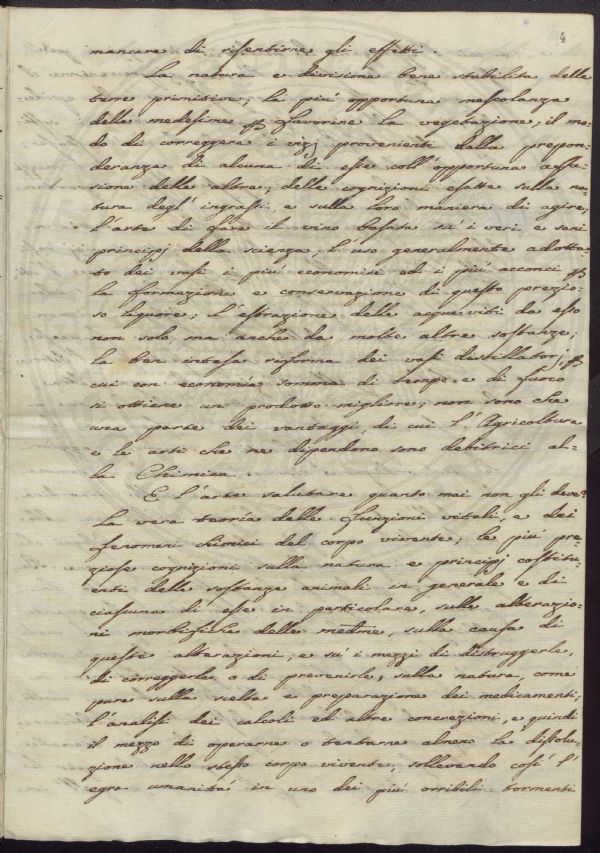 4
mancare di risentirne gli effetti.
La natura e divisione bene stabilita delle
terre primitive; la più opportuna mescolanza
delle medesime per favorire la vegetazione; il mo-
do di correggere i vizj provenienti dalla prepon-
deranza di alcuna di esse coll'opportuna affu-
sione delle altre; delle cognizioni esatte sulla na-
tura degl'ingrassi, e sulla loro maniera di agire;
l'arte di fare il vino basata su i veri e sani
principj della scienza; l'uso generalmente adotta-
to dei vasi i più economici ed i più acconci per
la formazione e conservazione di questo prezio-
so liquore; l'estrazione delle acqueviti da esso
non solo, ma anche da molte altre sostanze;
la ben intesa riforma dei vasi distillatorj, per
cui con economia somma di tempo e di fuoco
si ottiene un prodotto migliore; non sono che
una parte dei vantaggi, di cui l'Agricoltura
e le arti che ne dipendono sono debitrici al-
la Chimica.
E l'arte salutare quanto mai non gli deve?
La vera teoría delle funzioni vitali, e dei
fenomeni chimici del corpo vivente; le più pre-
ziose cognizioni sulla natura e principj costitu-
enti delle sostanze animali in generale e di
ciascuna di esse in particolare, sulle alterazio-
ni morbifiche delle medme, sulla causa di
queste alterazioni, e su i mezzi di distruggerle,
di correggerle o di prevenirle; sulla natura, come
pure sulla scelta e preparazione dei medicamenti;
l'analisi dei calcoli ed altre concrezioni, e quindi
il mezzo di operarne o tentarne almeno la dissolu-
zione nello stesso corpo vivente, sollevando così l'
egra umanità in uno dei più orribili tormenti